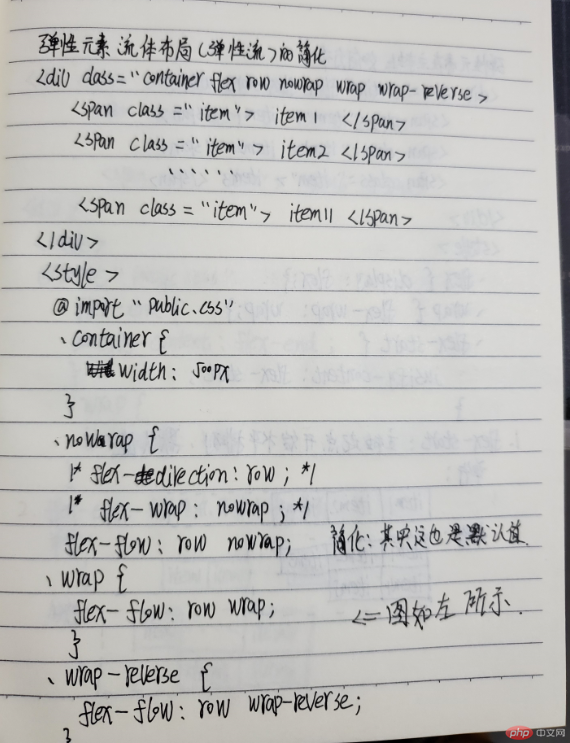 弹性元素 流体布局(弹性流)的简化
<div class="container flex row nowrap wrap wrap-reverse>
<span class ="item"> item1 </span>
<span class ="item"> item2 </span>
......
<span class ="item"> item11 </span>
</div>
<style>
@ import "public.css"
.container {
width: 500px
}
.nowrap {
/* flex-direction: row ; */
/* flex-wrap : nowrap ; */
flex-flow: row nowrap; 简化:其实这也是默认值.
.wrap {
flex-flow: row wrap; <= 图如左所示.
}
.wrap-reverse {
flex-flow: row wrap-reverse;
}
php 中文网